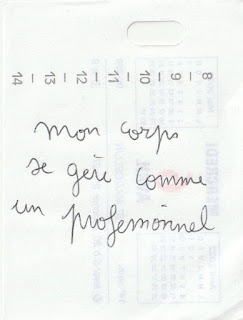 14 – 13 – 12 – 11 – 10 – 9 – 8
mon corps
se gère comme
un professionnel